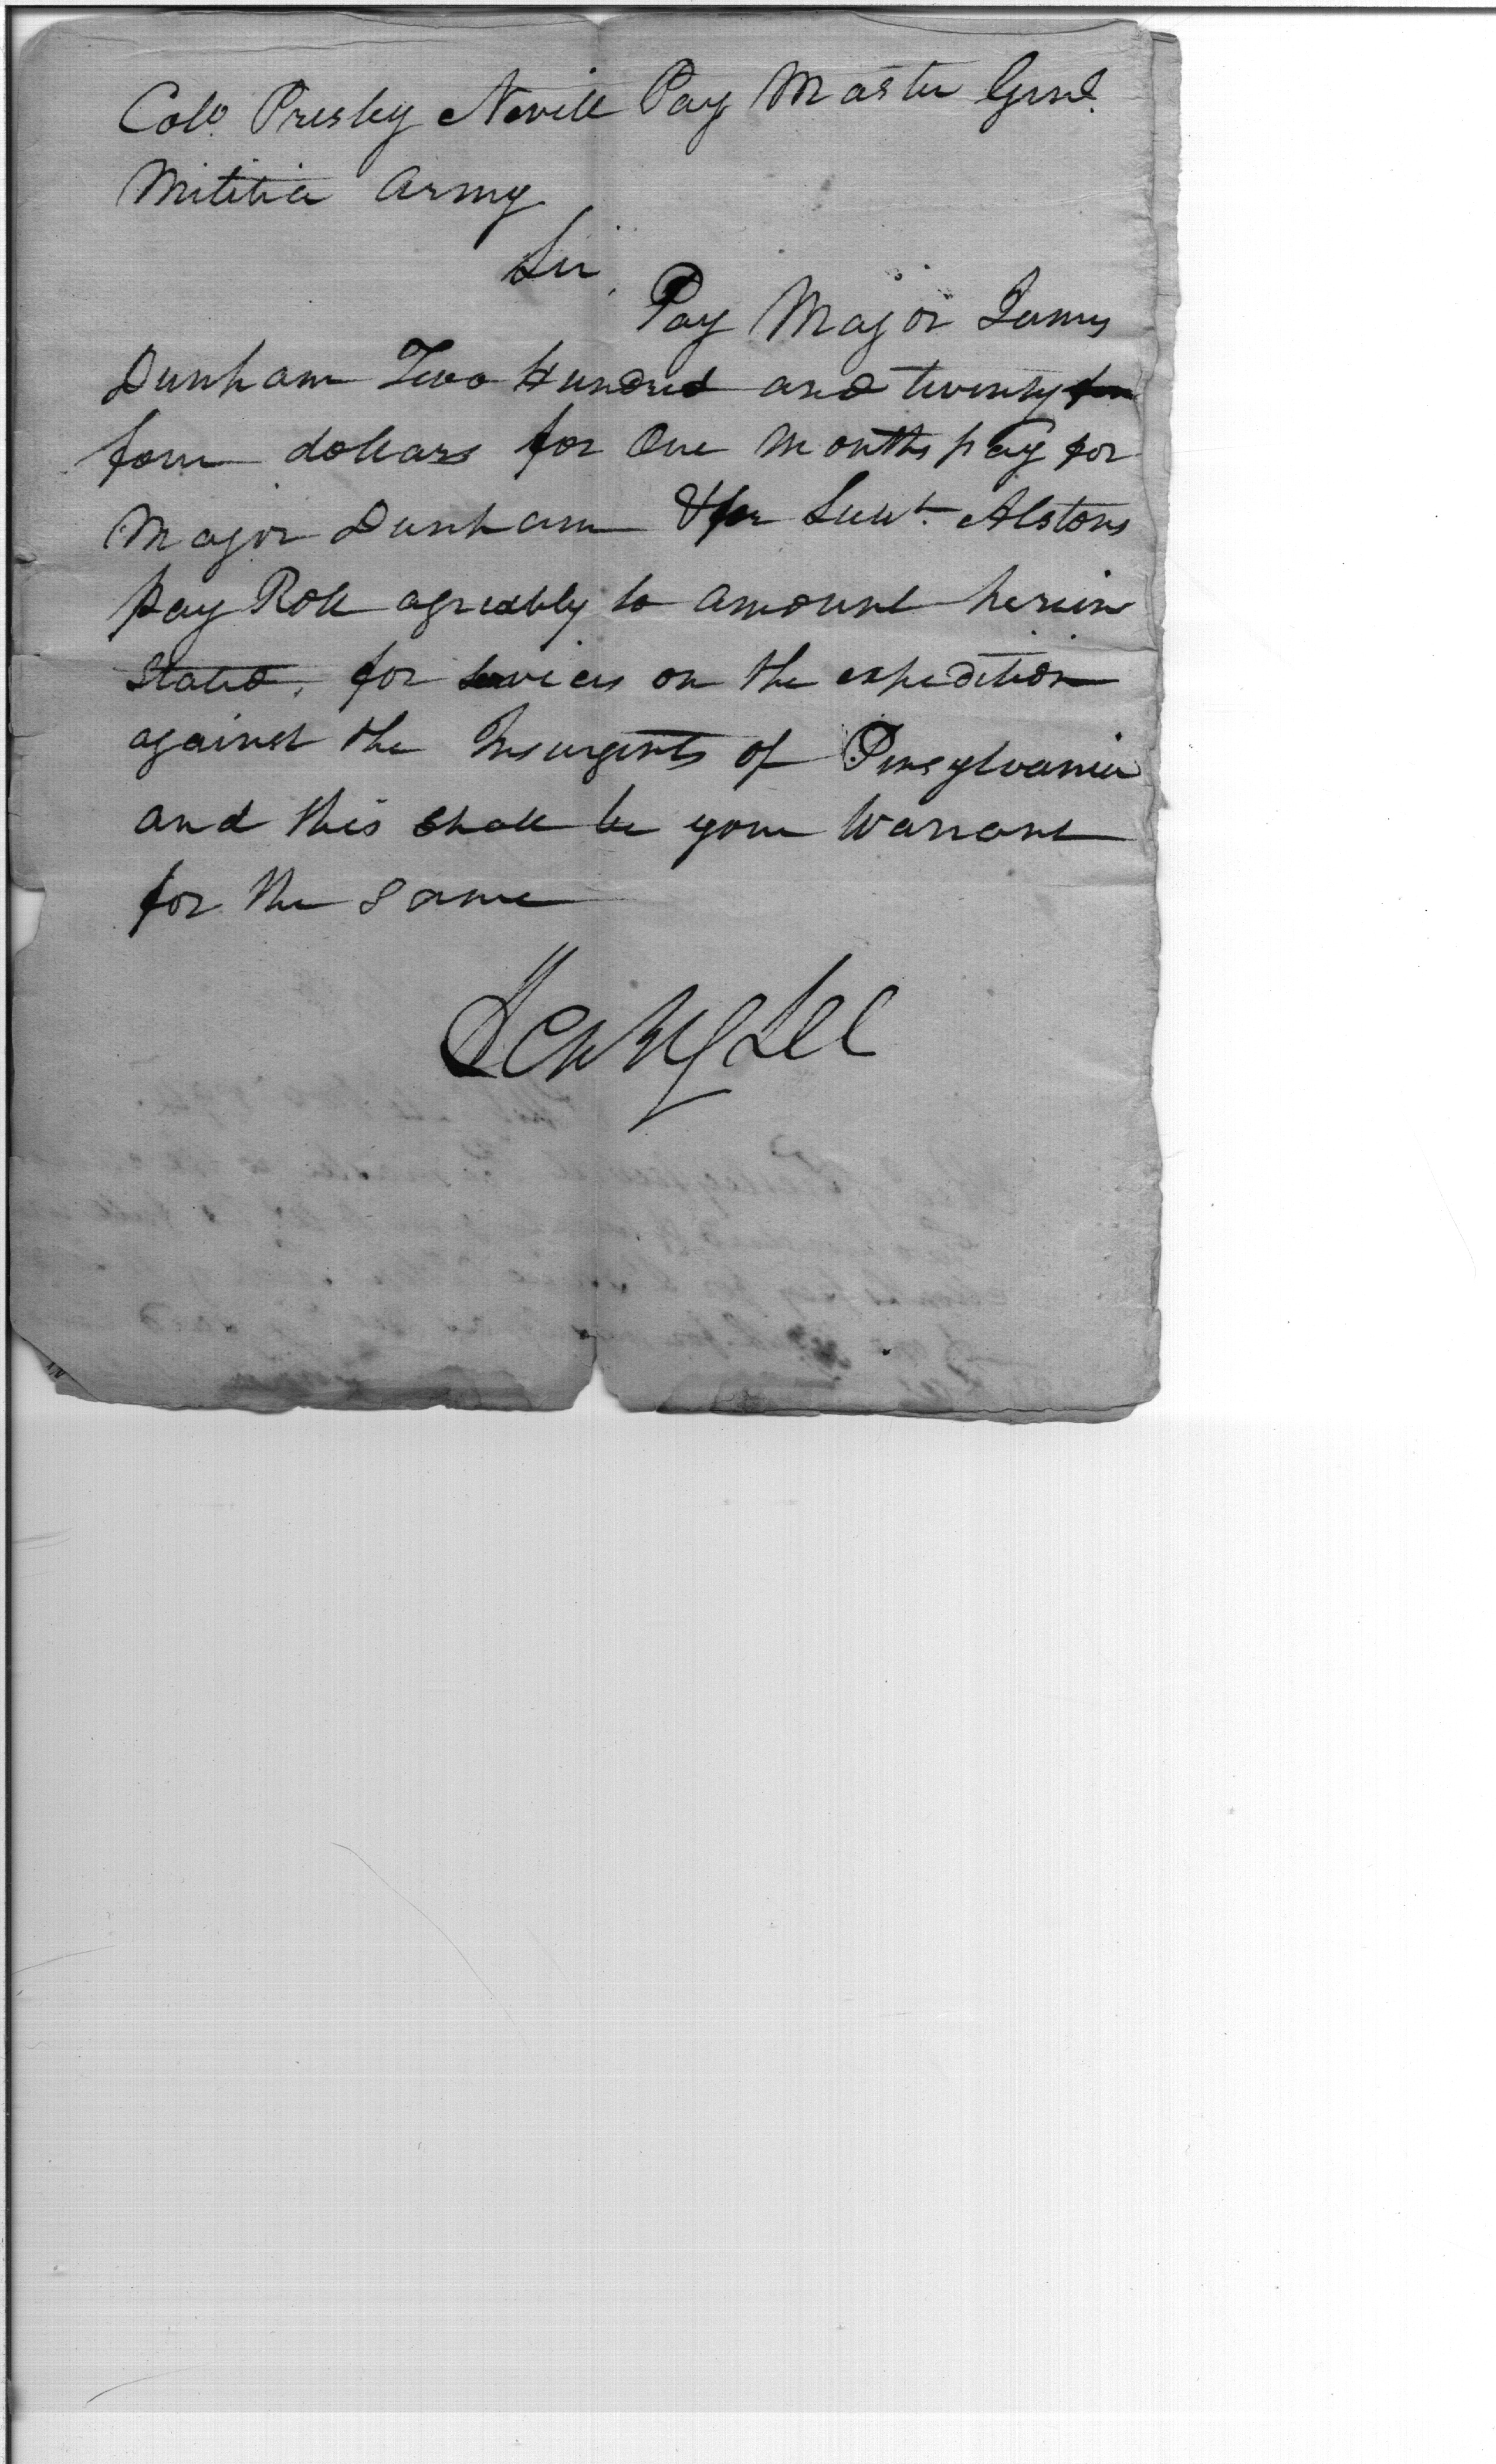 Colo. Presley Nevill Pay Master Genl.
Militia Army
Sir,
Pay Major James
Dunham Two Hundred and twenty
four dollars for One Months pay for
Major Dunham & for Lieut. Alstons
pay Roll agreeably to amount herein
Stated, for services on the expedition
against the Insurgents of Pensylvania
and this shall be your Warrant
for the same
Henry Lee